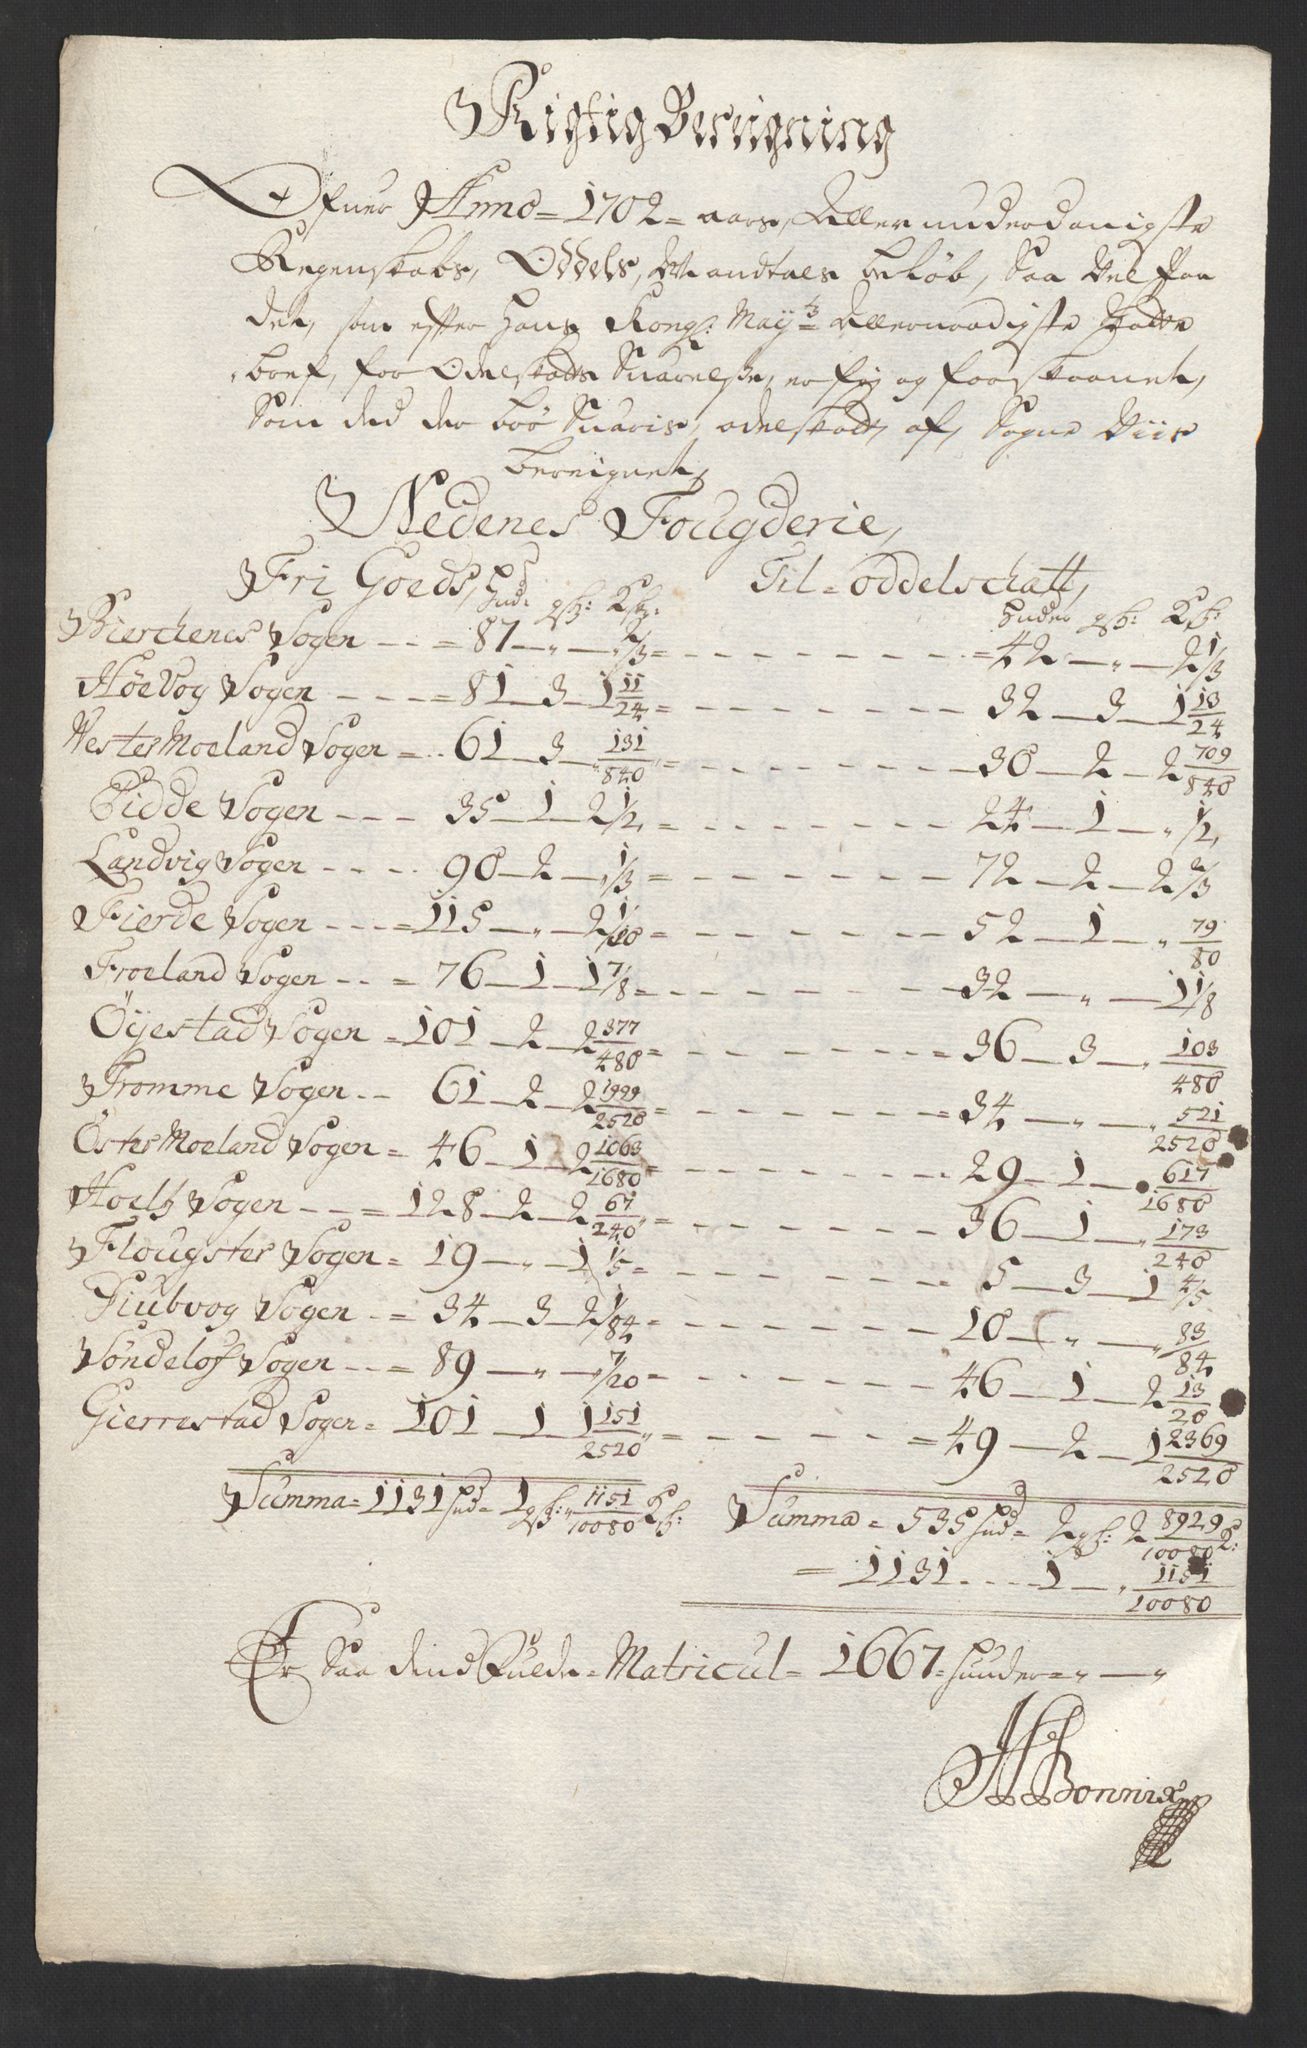 Rigtig Bereigning
Ofuer Anno = 1702 = aars, Aller underdanigste
Regenskabs, Oddels, Mandtals beløb, Saa Vel paa
det, som effter hans Kongl: Mayts Allernaadigste
bref, for Odelskatts Suarelsse, er frj og forskaanet,
Som ded der bør Suaris, odelskatt, af, Sogne Viis
bereignet,
Nedenes Fougderie,
Fri Goeds, Til = oddelschatt,
hud: qsk: Ksk: huder qsk: Ksk:
Bierchenes Sogen - - = 87 — „ — „ 2/3 = - - - = 42 — „ — 2 1/3
Høevog Sogen - - - = 81 — 3 — 1 11/24 = - - - 32 — 3 — 1 13/24
Wester Moeland Sogen = 61 — 3 — „ 131/840 = - - - 30 — 2 — 2 709/840
Eidde Sogen - - - 35 — 1 — 2 1/2 = - - - 24 — 1 — „ 1/2
Landvig Sogen - - - 90 — 2 — „ 1/3 = - - - 72 — 2 — 2 2/3
Fierde Sogen - - - = 115 — „ — 2 1/10 = - - - 52 — 1 — „ 79/80
Froeland Sogen - - = 76 — 1 — 1 7/8 = - - - 32 — „ — 1 1/8
Öyestad Sogen = 101 — 2 — 2 377/480 = - - - = 36 — 3 — „ 103/480
Tromme Sogen - - 61 — 2 — 2 1999/2520 = - - - = 34 — „ — „ 521/2520
Öster Moeland Sogen = 46 — 1 — 2 1063/1680 = - - - 29 — 1 — 617/1680
Hoelt Sogen - - - = 128 — 2 — 2 67/240 = - - - 36 — 1 — „ 173/240
Flougster Sogen = 19 — „ — 1 1/5 = - - - 5 — 3 — 1 4/5
Diubvog Sogen - = 34 — 3 — 2 1/84 = - - - 10 — „ — „ 83/84
Söndelöf Sogen - - = 89 — „ — „ 7/20 = - - - 46 — 1 — 2 13/20
Gierrestad Sogen = 101 — 1 — 1 151/2520 = - - - = 49 — 2 — 1 2369/2520
Summa = 1131 hud = 1 qsk: „ 1151/10080 Ksk: Summa = 535 hud = 2 qsk: 2 8929/10080 K:
= 1131 - - - 1 — „ 1151/10080
Er Saa dend Fulde = Matricul = 1667 = huder = „ — „